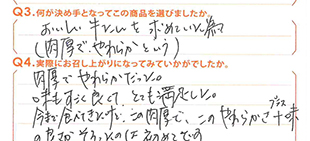 Q3.何が決め手となってこの商品を選びましたか。
おいしい牛たんを求めていた為
(肉厚でやわらかという)
Q4.実際にお召し上がりになってみていかがでしたか。
肉厚でやわらかだった。
味もすごく良くて、とても満足した。
今まで食べてきた中で、この肉厚で、このやわらかさ+味
プラス
の良さがそろったのは初めてです